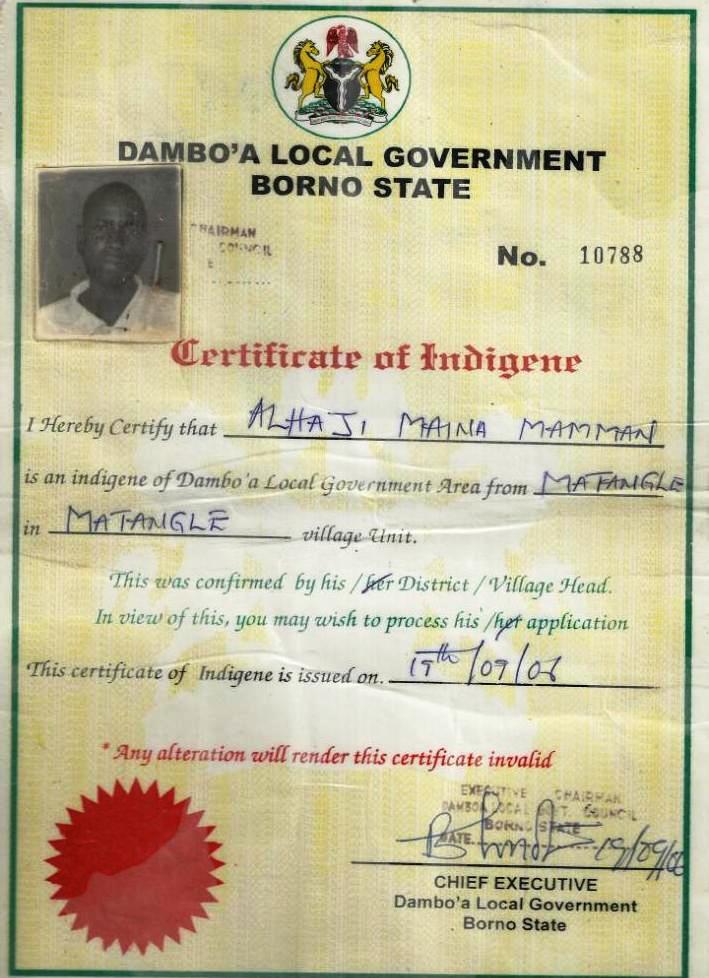 DAMBO'A LOCAL GOVERNMENT
BORNO STATE
HAIRMAN
COUNCIL
No. 10788
Certificate of Indigene
I Hereby Certify that ALHAJI MAINA MAMMAN
is an indigene of Dambo'a Local Government Area from MATANGLE
in MATANGLE village Unit.
This was confirmed by his / her District / Village Head.
In view of this, you may wish to process his /her application
This certificate of Indigene is issued on. 19th/09/06
* Any alteration will render this certificate invalid
EXECUTIVE CHAIRMAN
DAMBOA LOCAL GOVT. COUNCIL
BORNO STATE
DATE. 19/09/06
CHIEF EXECUTIVE
Dambo'a Local Government
Borno State